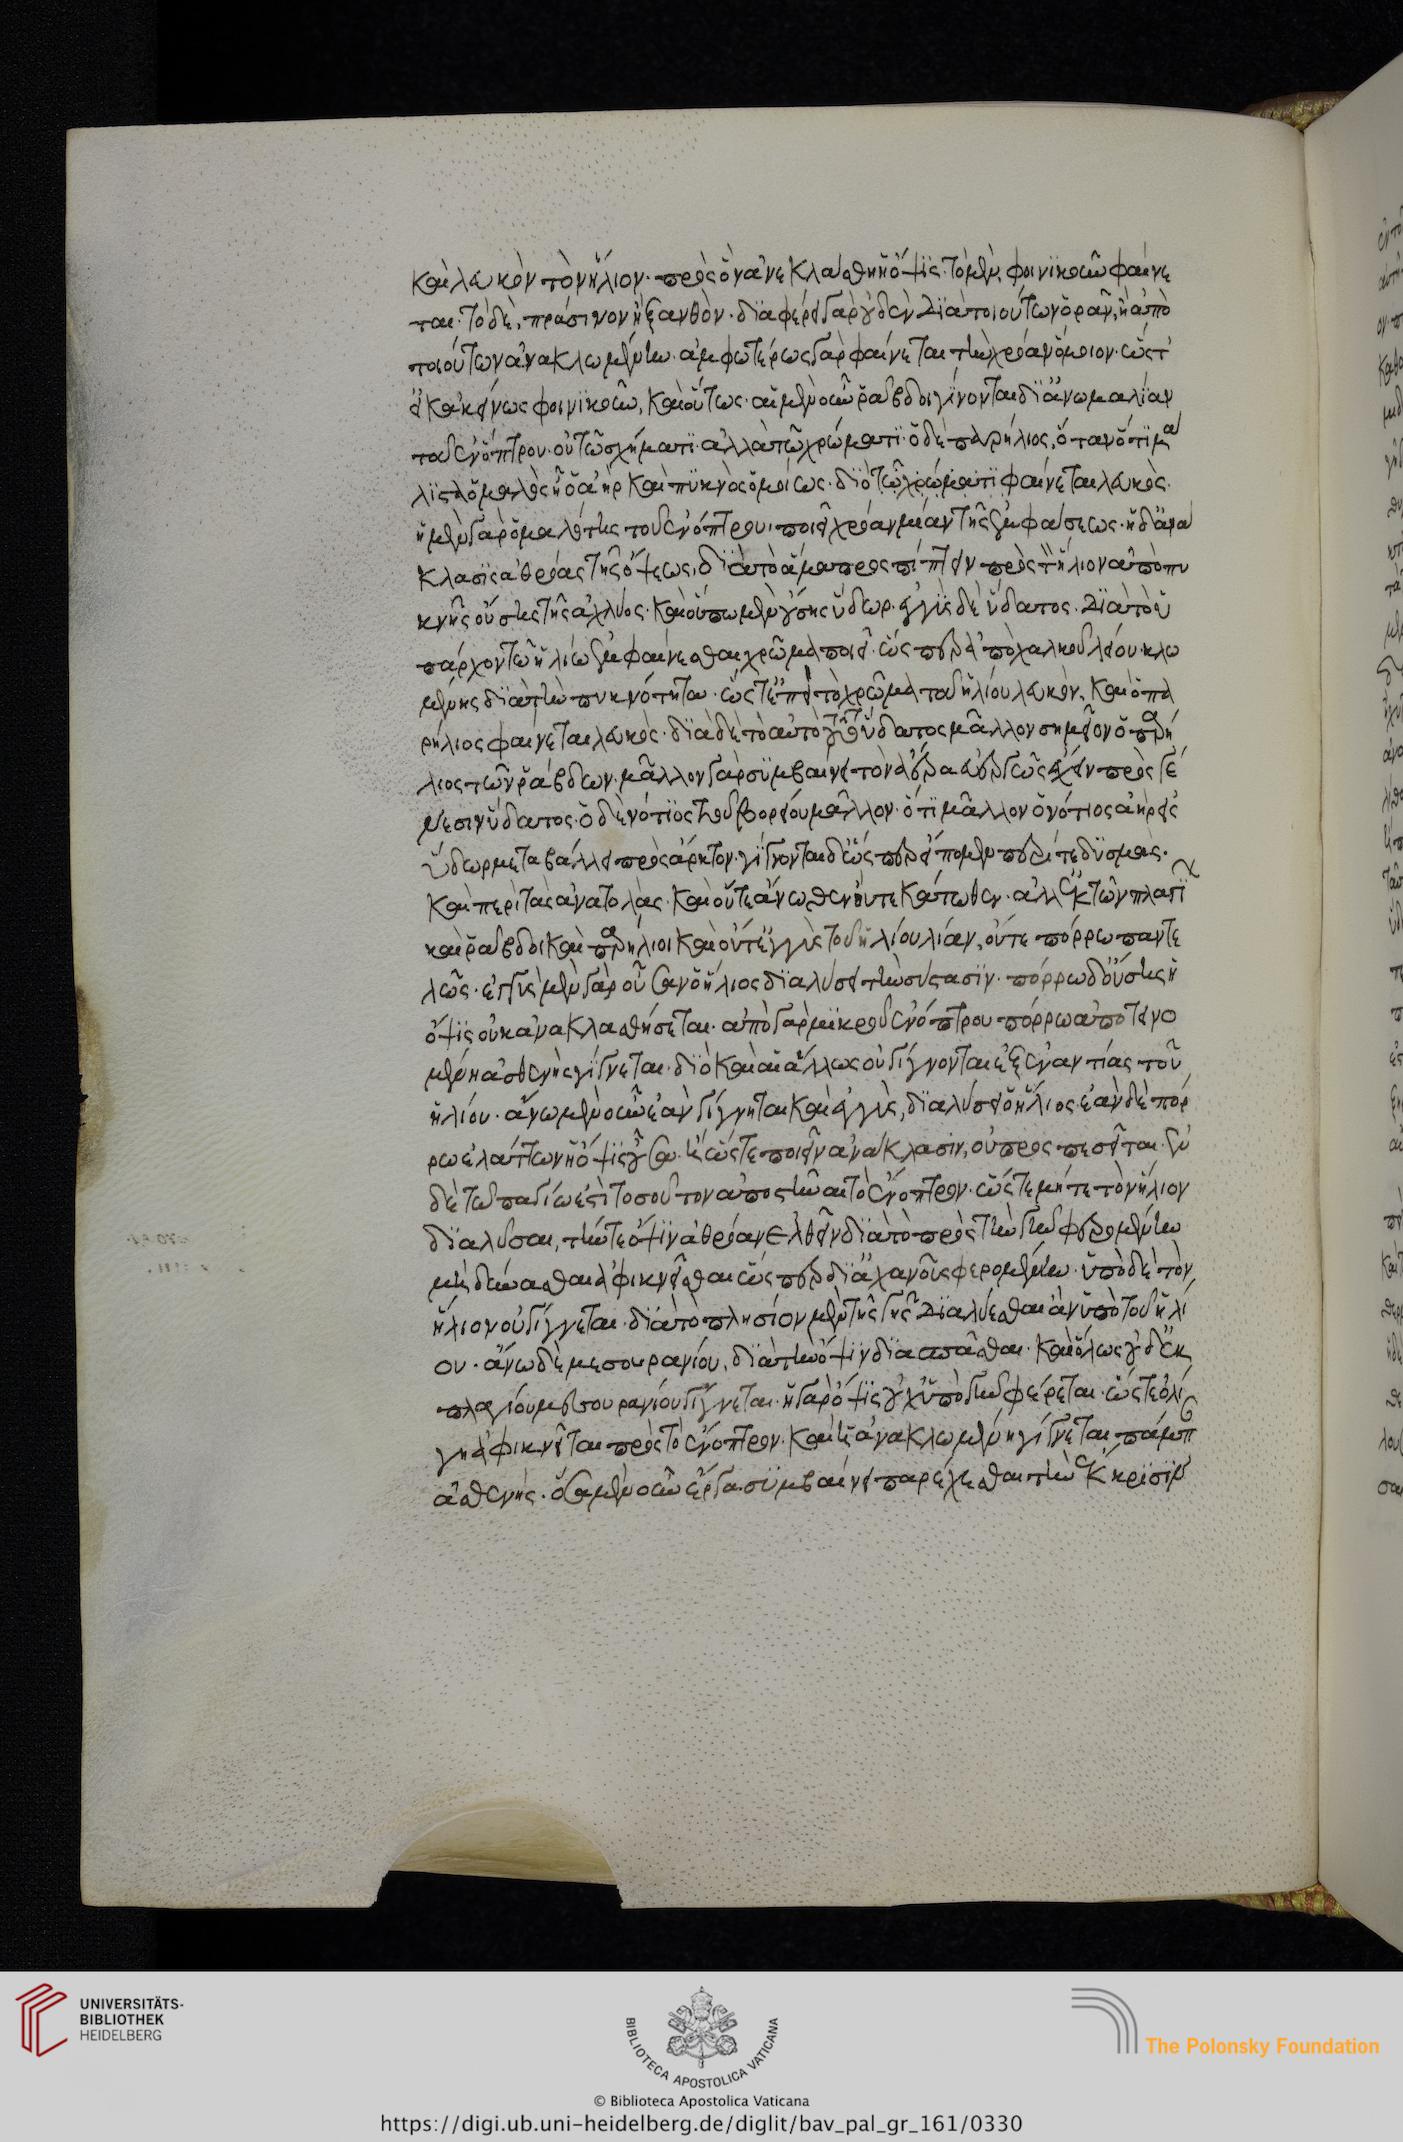 καὶ λευκὸν τὸν ἥλιον· πρὸς ὃν ἀνεκλάσθη ἡ ὄψις· τὸ μὲν, φοινικοῦν φαίνε
ται· τὸ δὲ, πράσινον ἢ ξανθὸν· διαφέρει γὰρ οὐδὲν διὰ τοιούτων ὁρᾶν, ἢ ἀπὸ
τοιούτων ἀνακλωμένην· ἀμφωτέρως γὰρ φαίνεται τὴν χρόαν ὅμοιον· ὥστ'
εἰ κἀκείνως φοινικοῦν, καὶ οὕτως· αἱ μὲν οὖν ῥάβδοι γίνονται δι' ἀνωμαλίαν
τοῦ ἐνόπτρου· οὐ τῷ σχήματι· ἀλλὰ τῷ χρώματι· ὁ δὲ παρήλιος, ὅταν ὅτι μά
λιστα ὁμαλὸς ᾖ ὁ ἀὴρ καὶ πυκνὸς ὁμοίως· διὸ τῷ χρώματι φαίνεται λευκὸς·
ἡ μὲν γὰρ ὁμαλότης τοῦ ἐνόπτρου, ποιεῖ χρόαν μίαν τῆς ἐμφάσεως· ἡ δ' ἀνά
κλασις ἀθρόας τῆς ὄψεως, διὰ τὸ ἅμα προσπίπτειν πρὸς τὸν ἥλιον ἀπὸ πυ
κνῆς οὔσης τῆς ἀχλύος· καὶ οὔπω μὲν οὔσης ὕδωρ· ἐγγὺς δὲ ὕδατος· διὰ τὸ ὑ
πάρχον τῷ ἡλίῳ ἐμφαίνεσθαι χρῶμα ποιεῖ· ὥσπερ ἀπὸ χαλκοῦ λείου κλω
μένης διὰ τὴν πυκνότητα· ὥστ' ἐπεὶ τὸ χρῶμα τοῦ ἡλίου λευκὸν, καὶ ὁ πα
ρήλιος φαίνεται λευκὸς· διὰ δὲ τὸ αὐτὸ τοῦτο ὕδατος μᾶλλον σημεῖον ὁ παρή
λιος τῶν ῥάβδων· μᾶλλον γὰρ συμβαίνει τὸν ἀέρα εὐεργῶς ἔχειν πρὸς γέ
νεσιν ὕδατος· ὁ δὲ νότιος τοῦ βορείου μᾶλλον· ὅτι μᾶλλον ὁ νότιος ἀὴρ εἰς
ὕδωρ μεταβάλλει πρὸς ἄρκτον· γίγνονται δ' ὥσπερ εἴπομεν περί τε δύσμας·
καὶ περὶ τὰς ἀνατολὰς· καὶ οὔτε ἄνωθεν οὔτε κάτωθεν· ἀλλ' ἐκ τῶν πλαγί
καὶ ῥάβδοι καὶ παρήλιοι καὶ οὔτ' ἐγγὺς τοῦ ἡλίου λίαν, οὔτε πόρρω παντε
λῶς· ἐγγὺς μὲν γὰρ οὖσαν ὁ ἥλιος διαλύσει τὴν σύστασιν· πόρρω δ' οὔσης ἡ
ὄψις οὐκ ἀνακλασθήσεται· ἀπὸ γὰρ μικροῦ ἐνόπτρου πόρρω ἀποτεινο
μένη ἀσθενὴς γίγνεται· διὸ καὶ αἱ ἄλλως οὐ γίγνονται ἐξ ἐναντίας τοῦ
ἡλίου· ἄνω μὲν οὖν ἐὰν γίγνηται καὶ ἐγγὺς, διαλύσει ὁ ἥλιος· ἐὰν δὲ πόρ
ρω ἐλάττων ἡ ὄψις οὖσα· ἢ ὥστε ποιεῖν ἀνάκλασιν, οὐ προσπεσεῖται· ἐν
δὲ τῷ παγίῳ ἐστὶ τοσοῦτον ἀποστῆναι τὸ ἔνοπτρον· ὥστε μήτε τὸν ἥλιον
διαλῦσαι, τήν τε ὄψιν ἀθρόαν ἐλθεῖν διὰ τὸ πρὸς τὴν γῆν φερομένην
μὴ δυνασθαι ἀφικνεῖσθαι ὥσπερ δι' ἀχανοῦς φερομένην· ὑπὸ δὲ τὸν
ἥλιον οὐ γίγνεται· διὰ τὸ πλησίον μὲν τῆς γῆς διαλύεσθαι ἂν ὑπὸ τοῦ ἡλί
ου· ἄνω δὲ μεσουρανίου, διὰ τὴν ὄψιν διασπᾶσθαι· καὶ ὅλως οὐδ' ἐκ
πλαγίου μεσουρανίου γίγνεται· ἡ γὰρ ὄψις οὐχ ὑπὸ γῆν φέρεται· ὥστε ὀλί
γη ἀφικνεῖται πρὸς τὸ ἔνοπτρον· καὶ ἡ ἀνακλωμένη γίγνεται πάμπ
ἀσθενής· ὅσα μὲν οὖν ἔργα συμβαίνει παρέχεσθαι τὴν ἔκκρισιν
UNIVERSITÄTS-
BIBLIOTHEK
HEIDELBERG
BIBLIOTECA APOSTOLICA VATICANA
The Polonsky Foundation
© Biblioteca Apostolica Vaticana
https://digi.ub.uni-heidelberg.de/diglit/bav_pal_gr_161/0330